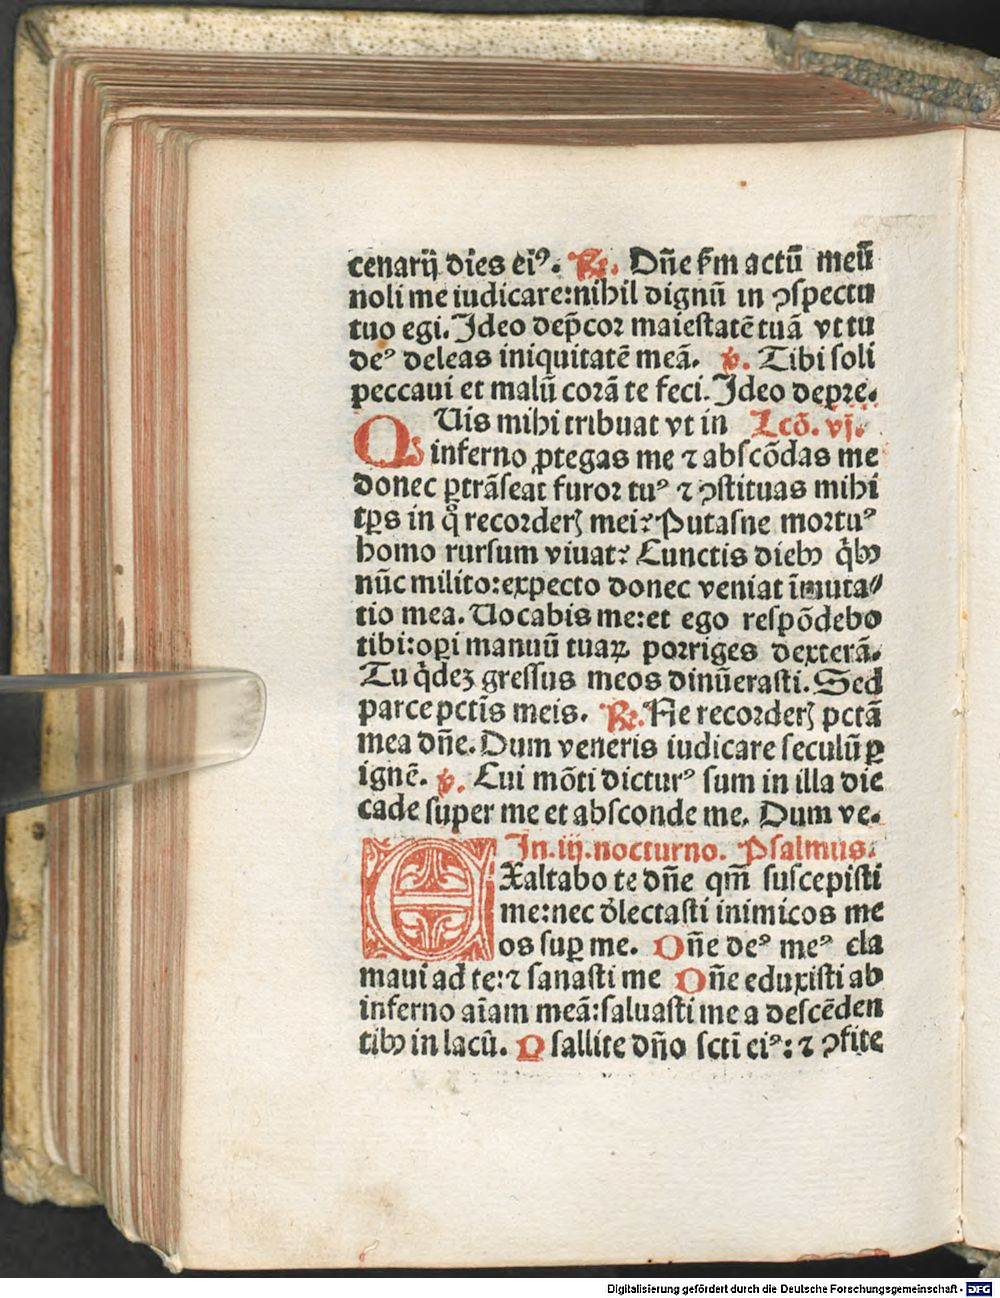 cẽnarij dies ei⁹. ℟. Dñe ẜm actũ meũ
noli me iudicare:nihil dignũ in ꝯspectu
tuo egi. Ideo dep̃cor maiestatẽ tuã vt tu
de⁹ deleas iniquitatẽ meã. ℣. Tibi soli
peccaui et malũ corã te feci. Ideo depre.
QUis mihi tribuat vt in Lcõ. vj.
inferno ꝓtegas me ⁊ abscõdas me
donec ꝑtrãseat furor tu⁹ ⁊ ꝯstituas mihi
tp̃s in q̊ recorderꝭ mei? Putasne mortu⁹
homo rursum viuat? Cunctis dieb⁹ q̇b⁹
nũc milito:expecto donec veniat ĩmuta⸗
tio mea. Uocabis me:et ego respõdebo
tibi:oꝑi manuũ tuaꝝ porriges dexterã.
Tu q̇deꝫ gressus meos dinũerasti. Sed
parce pctĩs meis. ℟. Ne recorderꝭ pctã
mea dñe. Dum veneris iudicare seculũ ꝑ
ignẽ. ℣. Cui mõti dictur⁹ sum in illa die
cade super me et absconde me. Dum ve.
In .iij. nocturno. Psalmus.
EXaltabo te dñe qm̃ suscepisti
me:nec d̾lectasti inimicos me
os suꝑ me. Dñe de⁹ me⁹ cla
maui ad te:⁊ sanasti me Dñe eduxisti ab
inferno aĩam meã:saluasti me a descẽden
tib⁹ in lacũ. Psallite dño sctĩ ei⁹: ⁊ ꝯfite
Digitalisierung gefördert durch die Deutsche Forschungsgemeinschaft - DFG